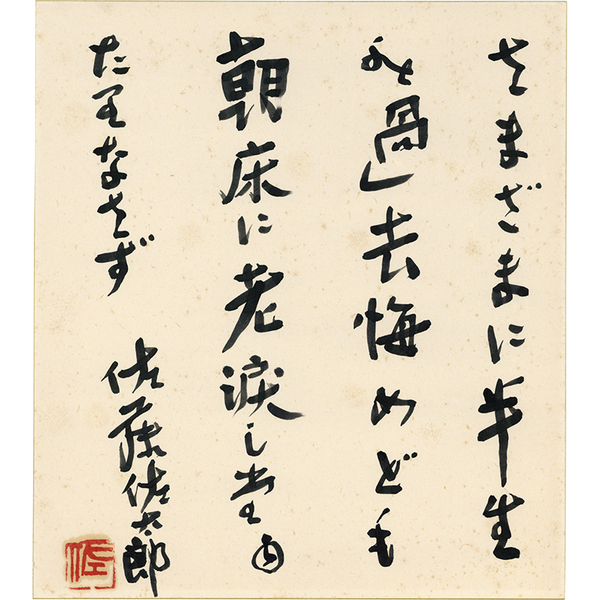 さまざまに半生
の過去悔めども
朝床に老涙し
たりなさず
佐藤佐太郎
佐